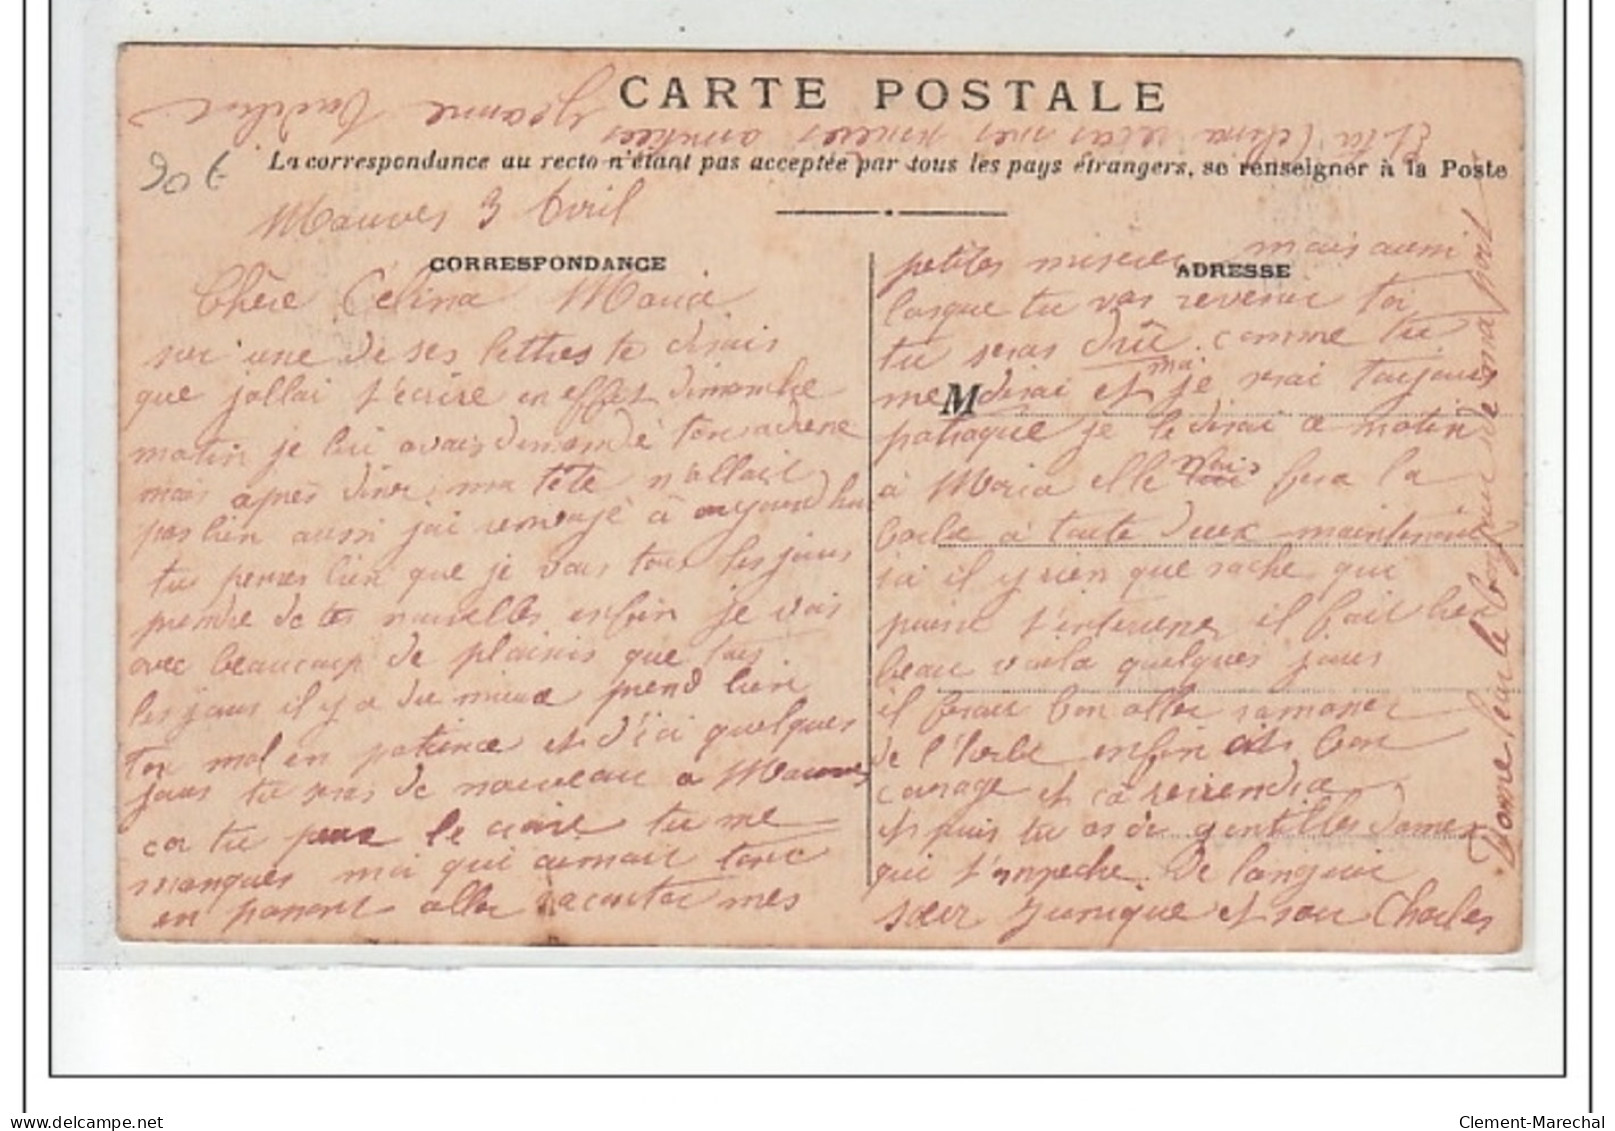 CARTE POSTALE
La correspondance au recto n'étant pas acceptée par tous les pays étrangers, se renseigner à la Poste
90 €
Mauves 3 Avril
CORRESPONDANCE
Chère Celina Maria
sur une de ses lettres te disais
que jallai t'écrire en effet dimenche
matin je lui avais demandé
mais après diner ma tête n'allait
pas bien aussi jai remazé à aujourd hui
tu penses bien que je vais tous les jours
prendre de tes nouvelles enfin je vois
avec beaucoup de plaisir que tous
les jours il y a du mieux prend bien
ton mal en patience et d'ici quelques
jours tu seras de nouveau a Mauves
car tu peux le croire tu me
manques moi qui aimait tant
en passant aller raconter mes
ADRESSE
petites miseres mais aussi
lorsque tu vas revenir toi
tu seras drue comme tu
M
me disai et moi je serai toujours
patraque je le disai ce matin
à Maria elle vous fera la
barbe à toute deux maintenant
ici il y rien que sache qui
puisse t'interesser il fait bien
beau voila quelques jours
il ferait bon aller ramasser
de l'herbe enfin ais bon
courage et ca reviendra
et puis tu as de gentilles dames
qui t'empeche De languir
sœur Yunique et son Charles
Donne leur le bonjour de ma part
Et ta Celina recois mes amitiées
Jeanne
Clement-Marechal
www.delcampe.net